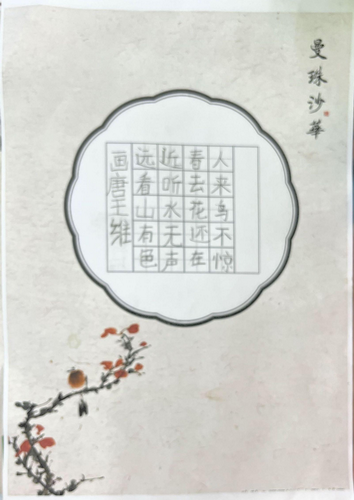 曼珠沙華
画唐王维
远看山有色
近听水无声
春去花还在
人来鸟不惊